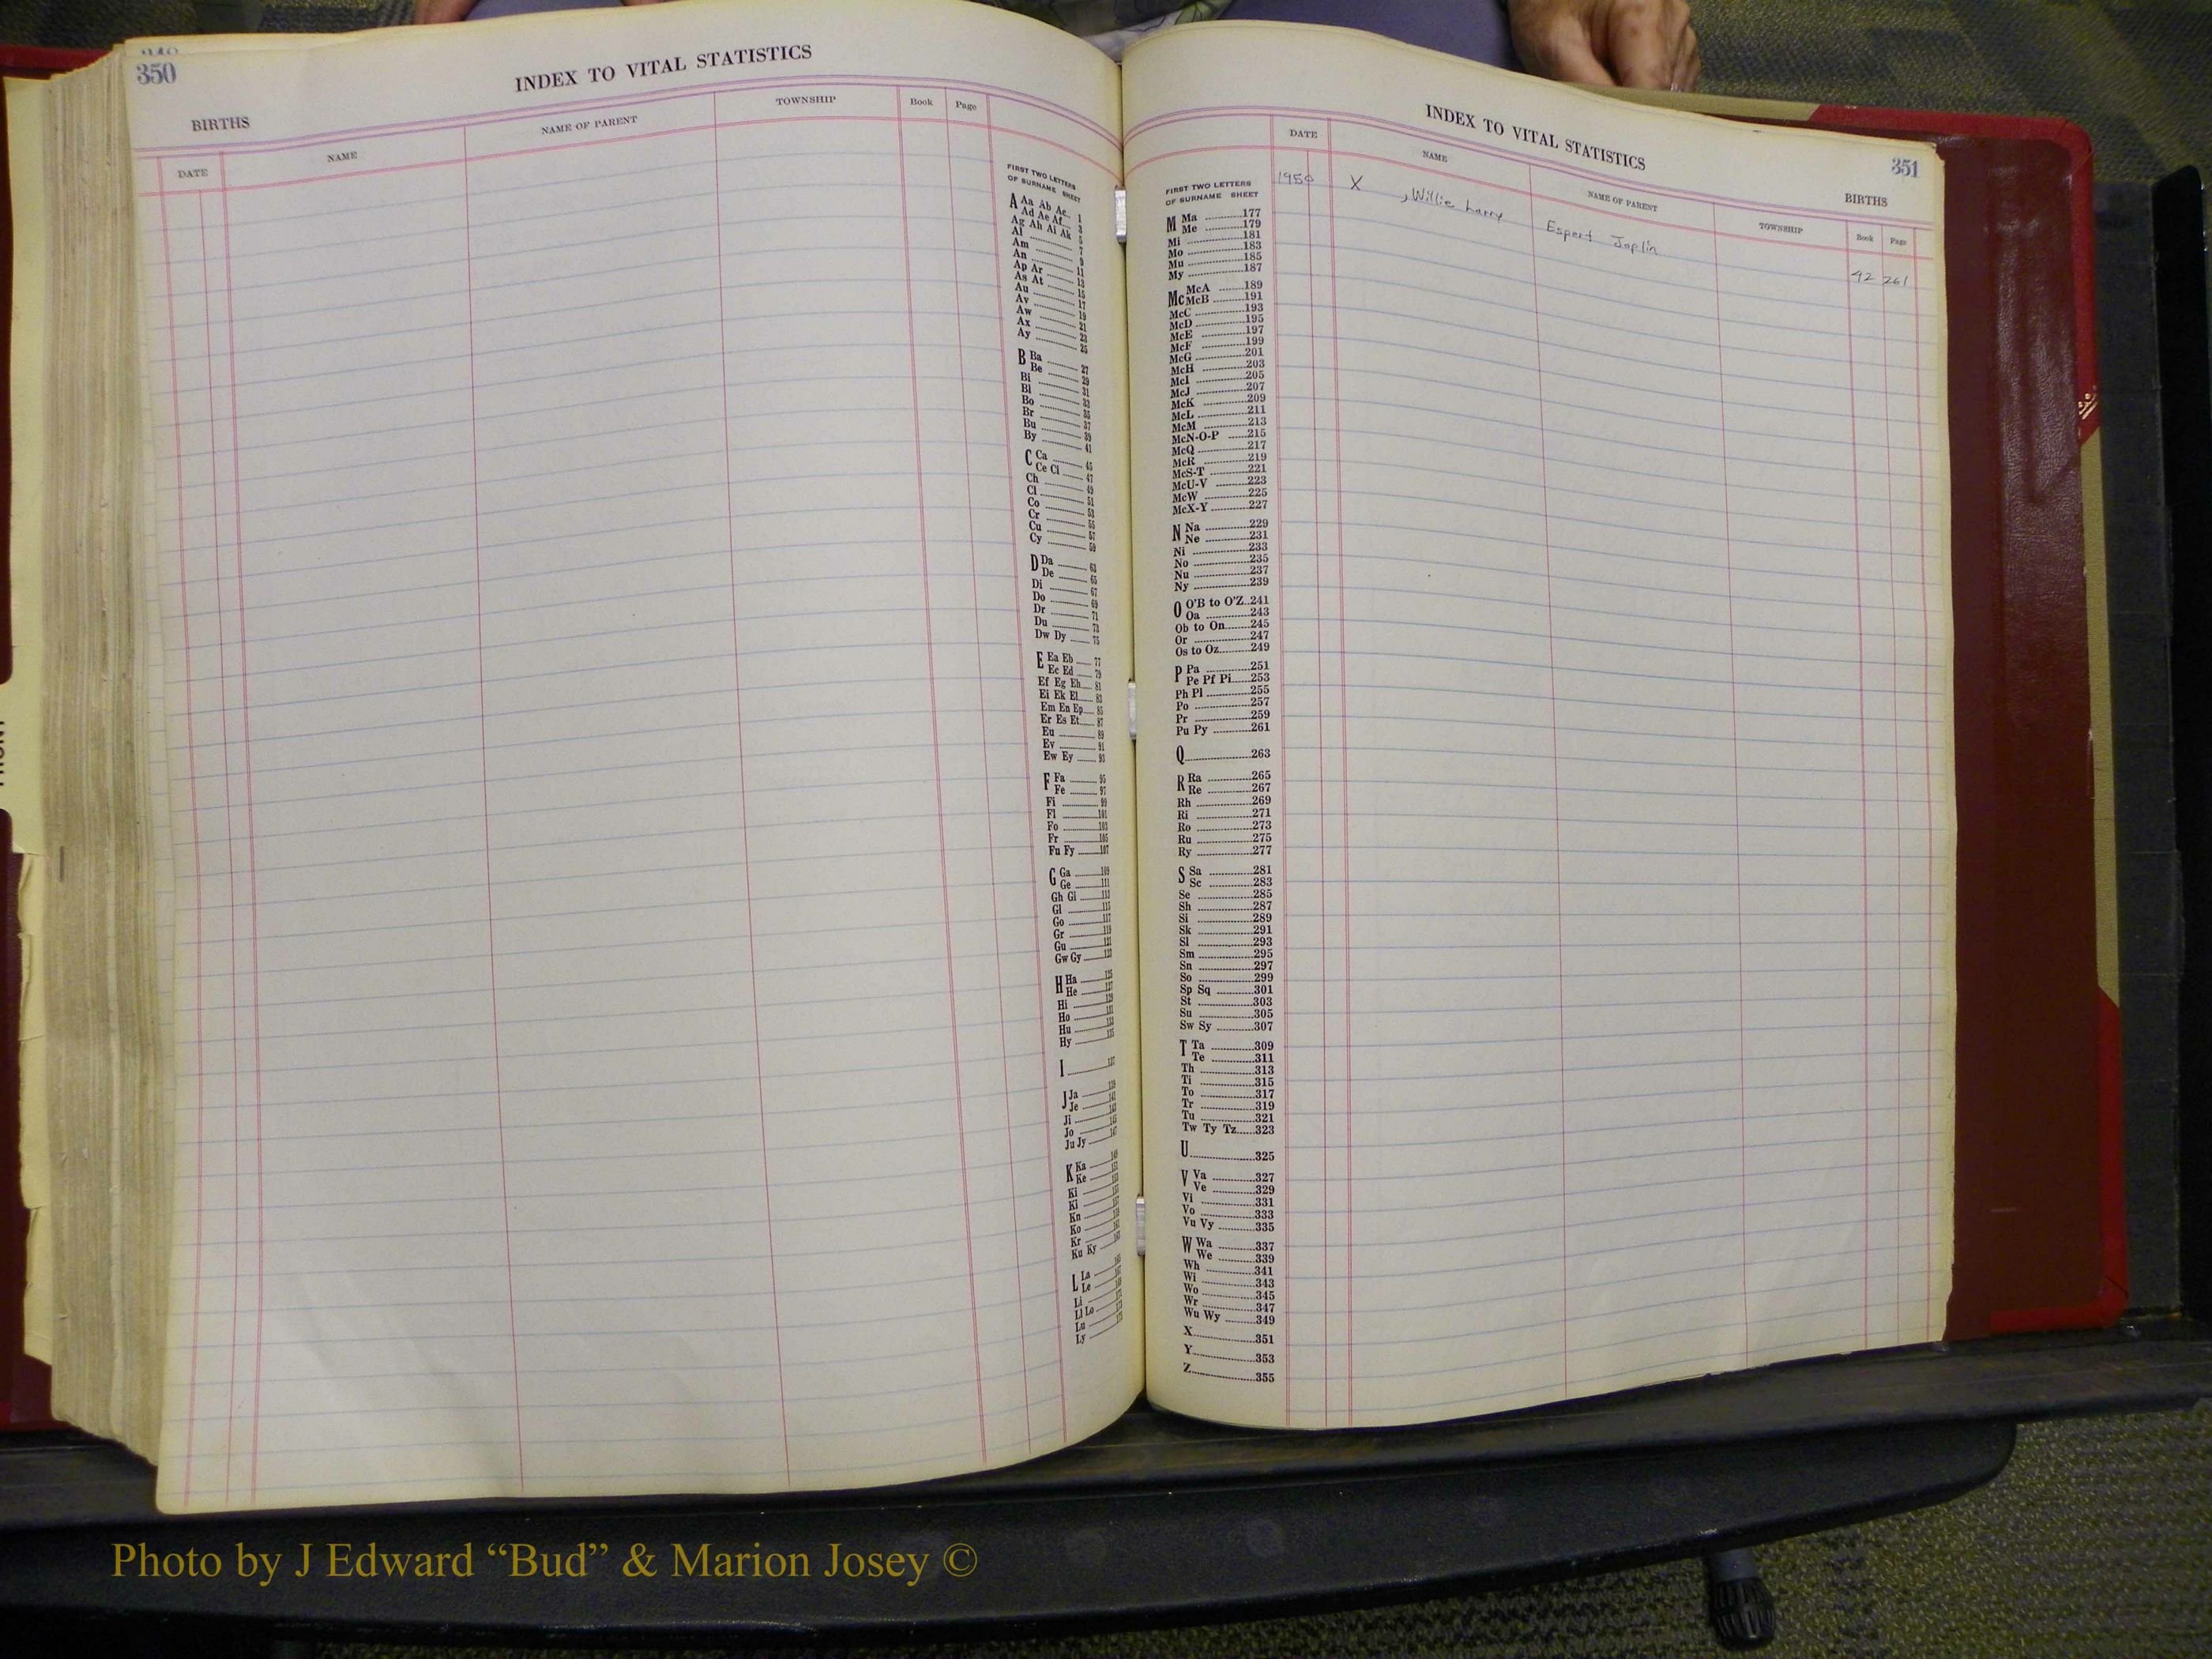 350
INDEX TO VITAL STATISTICS
BIRTHS
DATE NAME NAME OF PARENT TOWNSHIP Book Page
FIRST TWO LETTERS
OF SURNAME SHEET
A Aa Ab Ac 1
Ad Ae Af 3
Ag Ah Ai Ak 5
Al 7
Am 9
An 11
Ap Ar 13
As At 15
Au 17
Av 19
Aw 21
Ax 23
Ay 25
B Ba 27
Be 29
Bi 31
Bl 33
Bo 35
Br 37
Bu 39
By 41
C Ca 45
Ce Ci 47
Ch 49
Cl 51
Co 53
Cr 55
Cu 57
Cy 59
D Da 63
De 65
Di 67
Do 69
Dr 71
Du 73
Dw Dy 75
E Ea Eb 77
Ec Ed 79
Ef Eg Eh 81
Ei Ek El 83
Em En Ep 85
Er Es Et 87
Eu 89
Ev 91
Ew Ey 93
F Fa 95
Fe 97
Fi 99
Fl 101
Fo 103
Fr 105
Fu Fy 107
G Ga 109
Ge 111
Gh Gi 113
Gl 115
Go 117
Gr 119
Gu 121
Gw Gy 123
H Ha 125
He 127
Hi 129
Ho 131
Hu 133
Hy 135
I 137
J Ja
Je
Ji
Jo
Ju Jy
K Ka
Ke
Ki
Kl
Kn
Ko
Kr
Ku Ky
L La
Le
Li
Ll Lo
Lu
Ly
351
INDEX TO VITAL STATISTICS
BIRTHS
DATE NAME NAME OF PARENT TOWNSHIP Book Page
1950 X , Willie Larry Espert Joplin 42 261
FIRST TWO LETTERS
OF SURNAME SHEET
M Ma 177
Me 179
Mi 181
Mo 183
Mu 185
My 187
Mc McA 189
McB 191
McC 193
McD 195
McE 197
McF 199
McG 201
McH 203
McI 205
McJ 207
McK 209
McL 211
McM 213
McN-O-P 215
McQ 217
McR 219
McS-T 221
McU-V 223
McW 225
McX-Y 227
N Na 229
Ne 231
Ni 233
No 235
Nu 237
Ny 239
O O'B to O'Z 241
Oa 243
Ob to On 245
Or 247
Os to Oz 249
P Pa 251
Pe Pf Pi 253
Ph Pl 255
Po 257
Pr 259
Pu Py 261
Q 263
R Ra 265
Re 267
Rh 269
Ri 271
Ro 273
Ru 275
Ry 277
S Sa 281
Sc 283
Se 285
Sh 287
Si 289
Sk 291
Sl 293
Sm 295
Sn 297
So 299
Sp Sq 301
St 303
Su 305
Sw Sy 307
T Ta 309
Te 311
Th 313
Ti 315
To 317
Tr 319
Tu 321
Tw Ty Tz 323
U 325
V Va 327
Ve 329
Vi 331
Vo 333
Vu Vy 335
W Wa 337
We 339
Wh 341
Wi 343
Wo 345
Wr 347
Wu Wy 349
X 351
Y 353
Z 355
Photo by J Edward “Bud” & Marion Josey ©